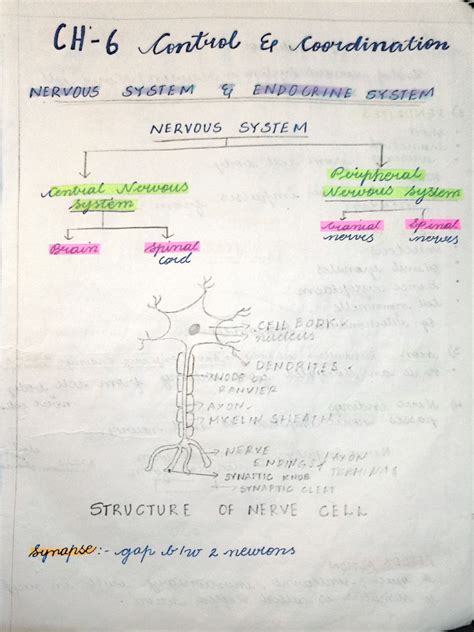 CH-6 Control & Coordination
NERVOUS SYSTEM & ENDOCRINE SYSTEM
NERVOUS SYSTEM
Central Nervous System
Peripheral Nervous System
Brain
Spinal cord
Cranial nerves
Spinal nerves
CELL BODY
nucleus
DENDRITES
NODE OF
RANVIER
AXON
MYELIN SHEATH
NERVE
ENDINGS / AXON
TERMINALS
SYNAPTIC KNOB
SYNAPTIC CLEFT
STRUCTURE OF NERVE CELL
Synapse :- gap b/w 2 neurons